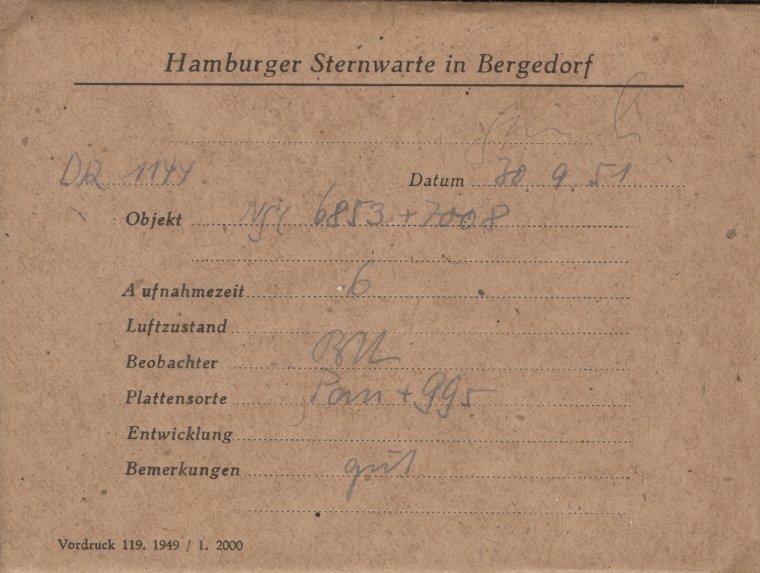 Hamburger Sternwarte in Bergedorf
DR 1144. Datum 30. 9. 51
Objekt NGC 6853 + 7008
Aufnahmezeit 6
Luftzustand
Beobachter
Plattensorte Pan + 995
Entwicklung
Bemerkungen gut
Vordruck 119. 1949 / 1. 2000